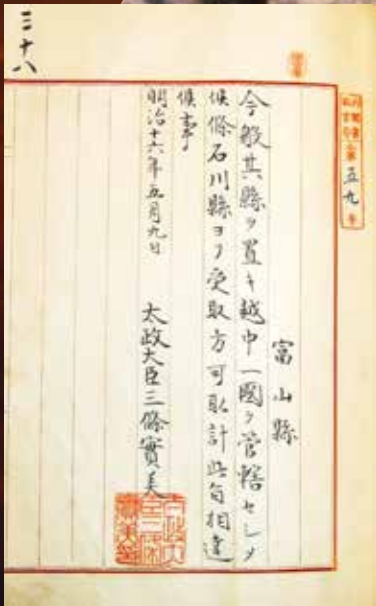 三十八
第五九号
富山縣
今般其縣ヲ置キ越中一國ヲ管轄セシメ
候條石川縣ヨリ受取方可取計此旨相達
候事
明治十六年五月九日
太政大臣三條實美